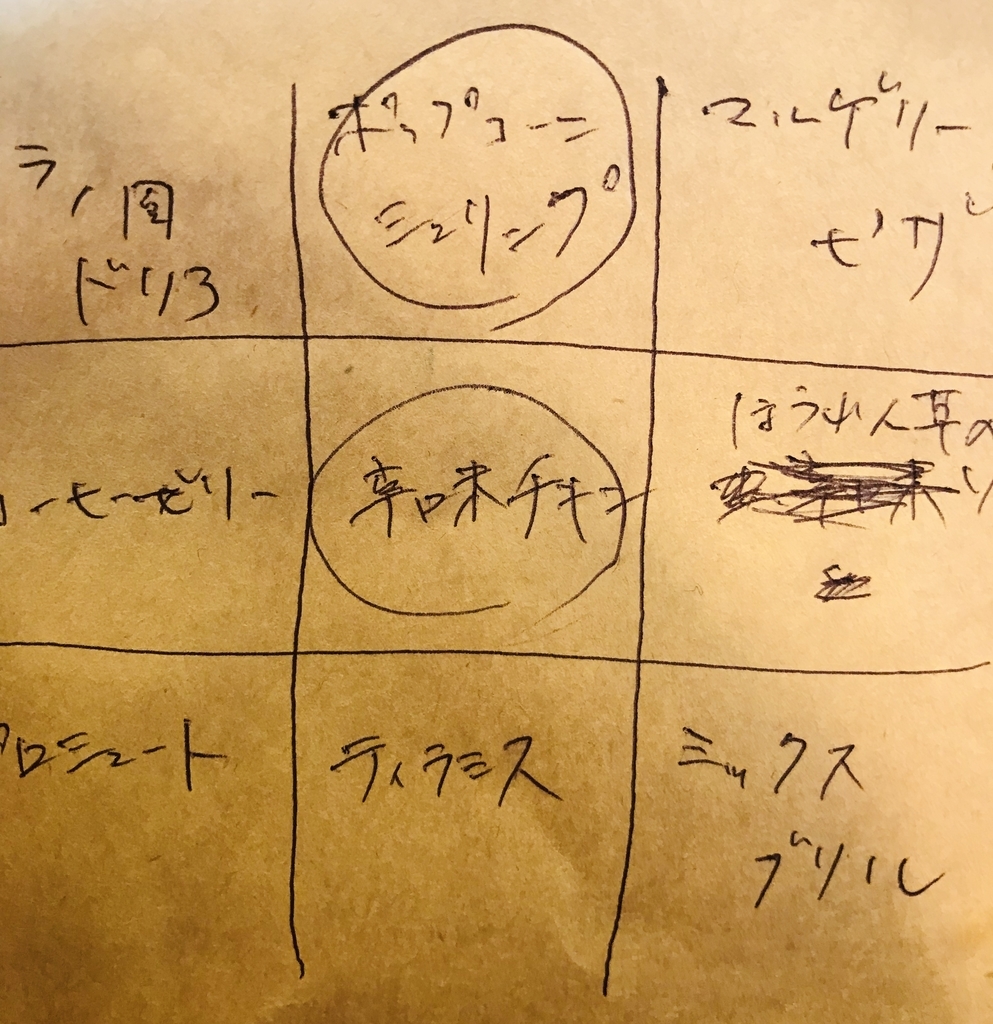 ラノ風
ドリア
ポップコーン
シュリンプ
マルゲリー
ピザ
コーヒーゼリー
辛味チキン
ほうれん草の
プロシュート
ティラミス
ミックス
グリル